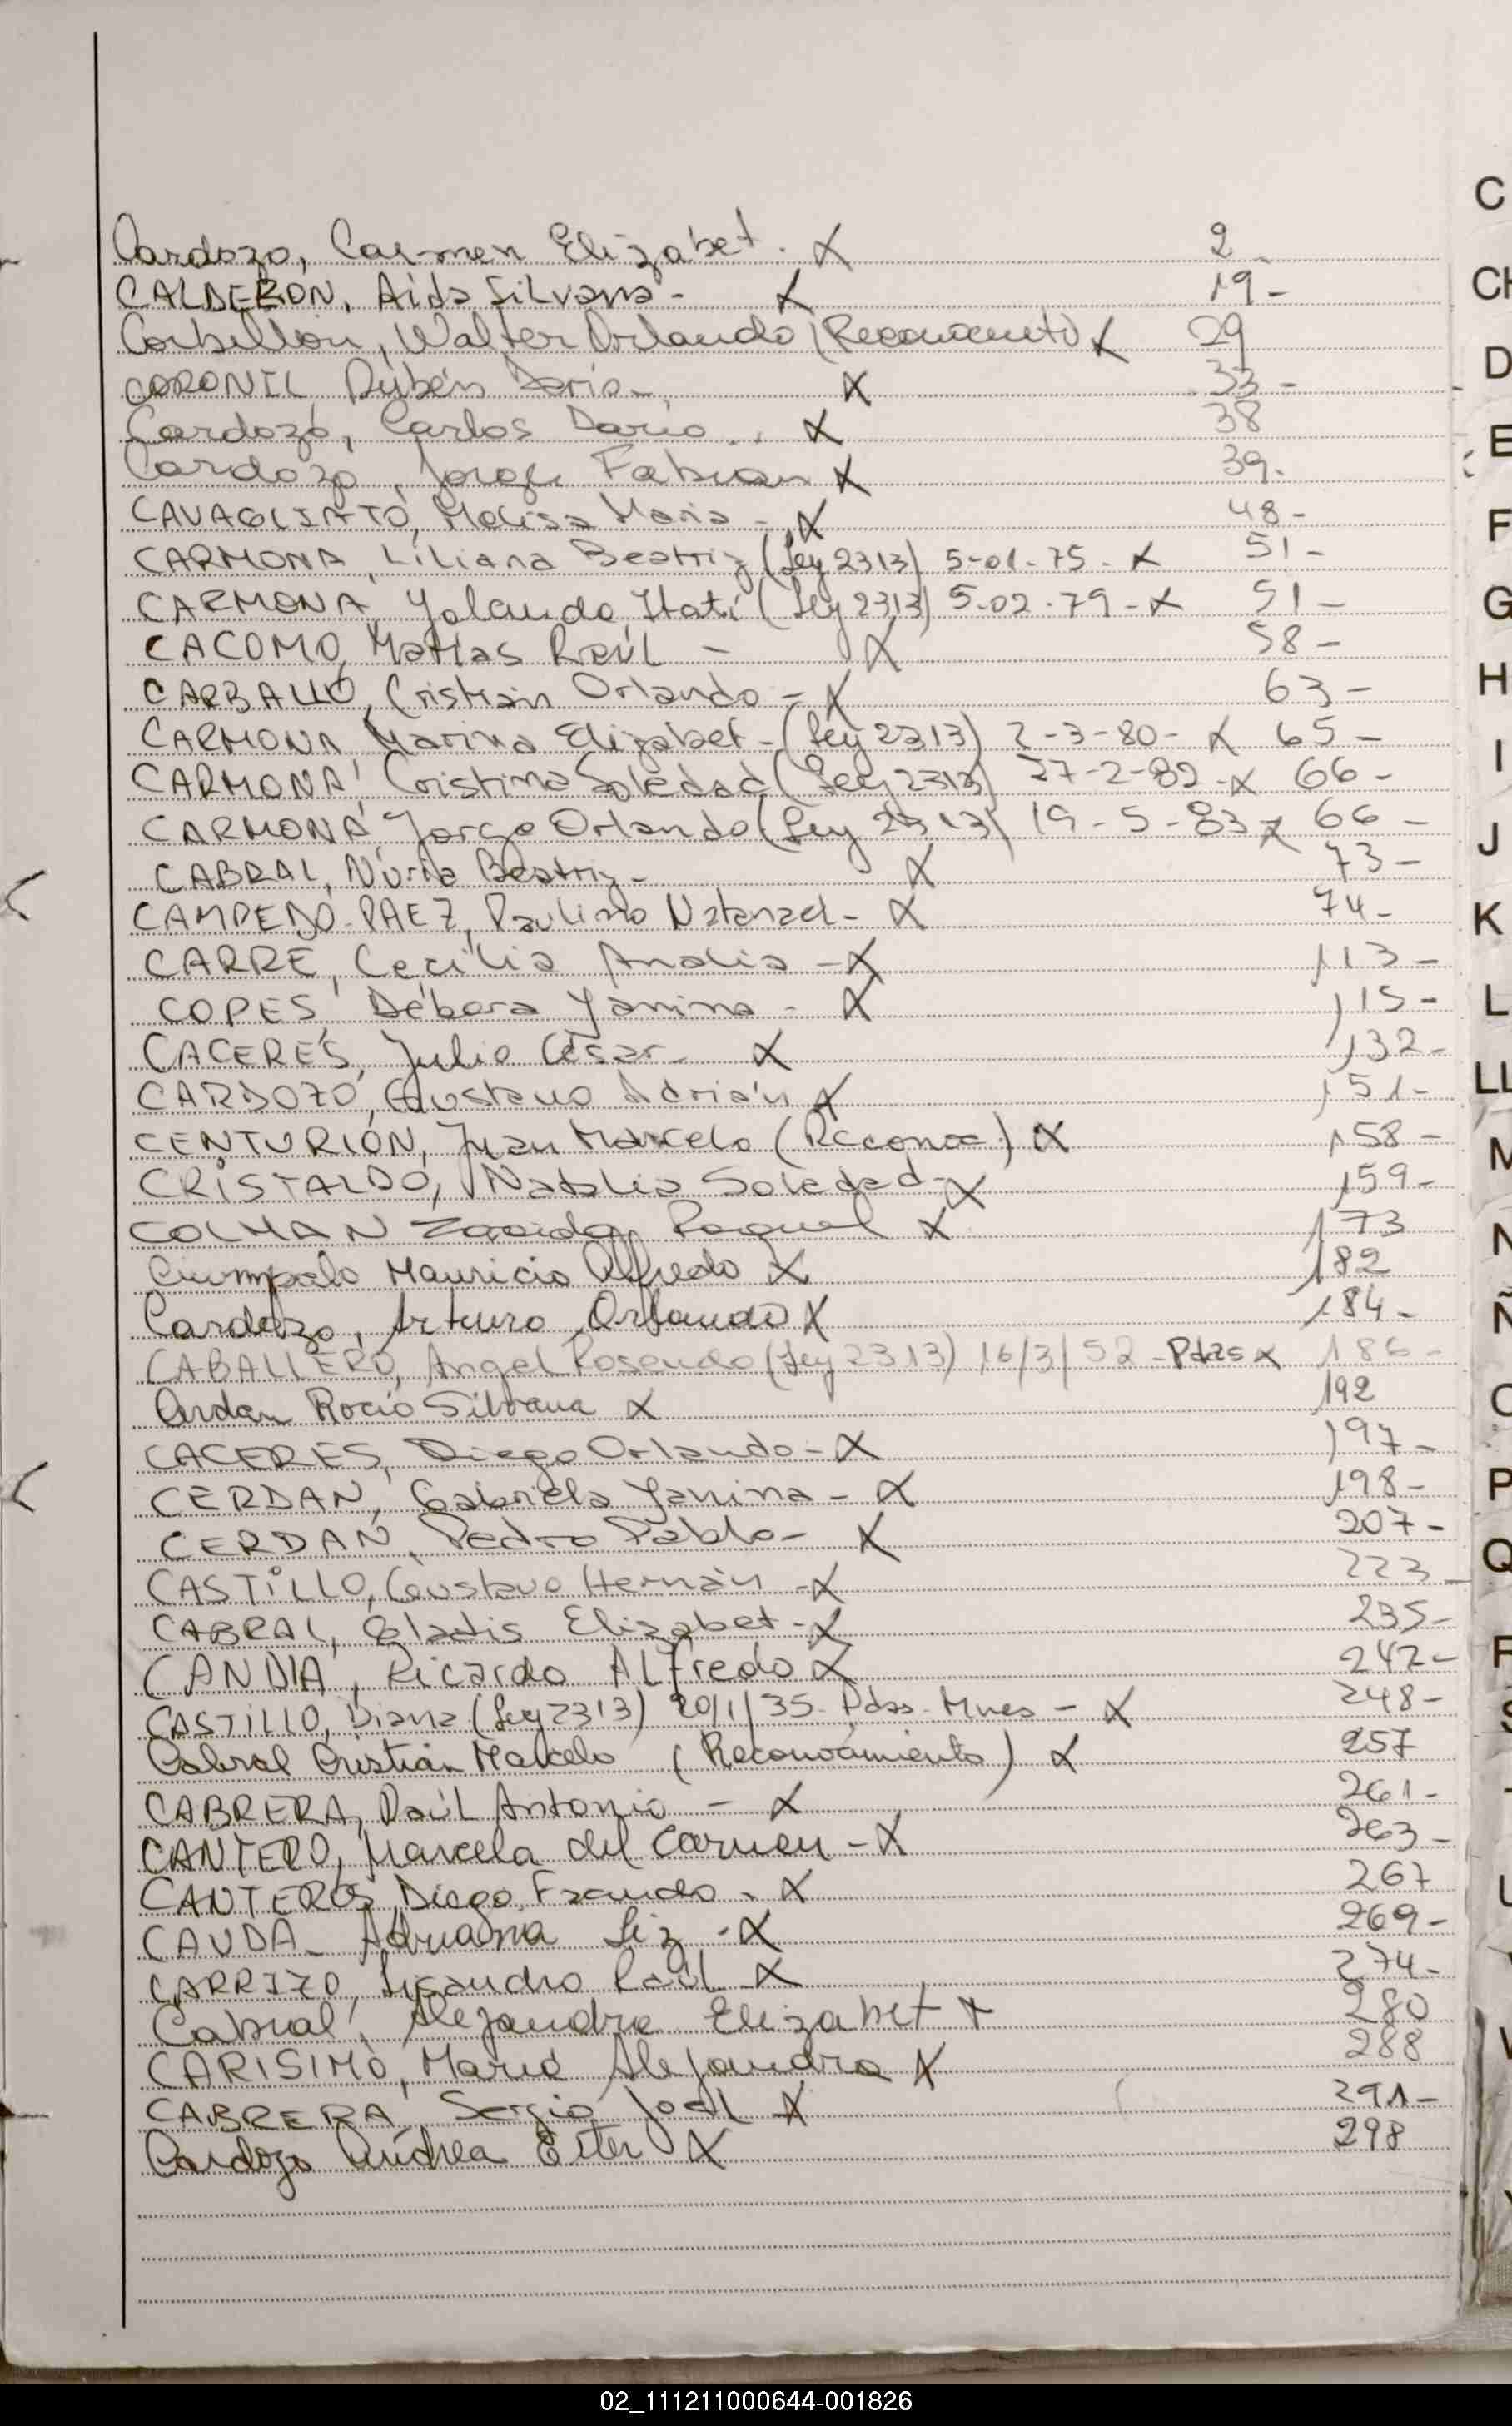 Cardozo, Carmen Elizabet. X 2
CALDERON, Aida Silvana - X 19 -
Corbellon, Walter Orlando (Reconocimiento) X 29
CORONIL Rubén Dario - X 33 -
Cardozo, Carlos Dario .. X 38
Cardozo, Jorge Fabian X 39.
CAVAGLIATO, Melisa Maria - X 48 -
CARMONA, Liliana Beatriz (Ley 2313) 5-01-75 - X 51 -
CARMONA, Yolanda Itatí (Ley 2313) 5-02-79 - X 51 -
CACOMO, Matias Raúl - X 58 -
CARBALLO, Cristián Orlando - X 63 -
CARMONA, Marina Elizabet - (Ley 2313) 2-3-80 - X 65 -
CARMONA, Cristina Soledad (Ley 2313) 27-2-82 - X 66 -
CARMONA, Jorge Orlando (Ley 2313) 19-5-83 X 66 -
CABRAL, Nuria Beatriz - X 73 -
PAEZ, Paulino Natanael - X 74 -
CARRE, Cecilia Analia - X 113 -
COPES, Débora Yanina - X 115 -
CACERES, Julio César - X 132 -
CARDOZO, Gustavo Adrián X 151 -
CENTURIÓN, Juan Marcelo (Reconoc.) X 158 -
CRISTALDO, Natalia Soledad - X 159 -
COLMAN Raquel X 173
Mauricio Alfredo X 182
Cardozo, Arturo Orlando X 184 -
CABALLERO, Angel Rosendo (Ley 2313) 16/3/52 - Pdas X 186 -
Rocio Silvana X 192
CACERES, Diego Orlando - X 197 -
CERDAN, Gabriela Yanina - X 198 -
CERDAN, Pedro Pablo - X 207 -
CASTILLO, Gustavo Hernán - X 223
CABRAL, Gladis Elizabet - X 235 -
CANDIA, Ricardo ALfredo X 242 -
CASTILLO, Diana (Ley 2313) 20/1/35 - Pdas. Mnes - X 248 -
Cabral Cristián Marcelo (Reconocimiento) X 257
CABRERA, Raúl Antonio - X 261 -
CANTERO, Marcela del Carmen - X 263 -
CANTEROS, Diego - X 267
CAUDA - Adriana Liz - X 269 -
CARRIZO, Lisandro Raúl X 274 -
Cabral, Alejandra Elizabet X 280
CARISIMO, Mario Alejandro X 288
CABRERA, Sergio Joel X 291 -
Cardozo Andrea Ester X 298
C
CH
D
E
F
G
H
I
J
K
L
LL
M
N
Ñ
O
P
Q
R
S
02_111211000644-001826